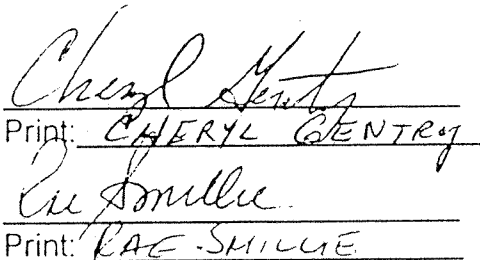 Cheryl Gentry
Print: CHERYL GENTRY
Rae Smillie
Print: RAE SMILLIE